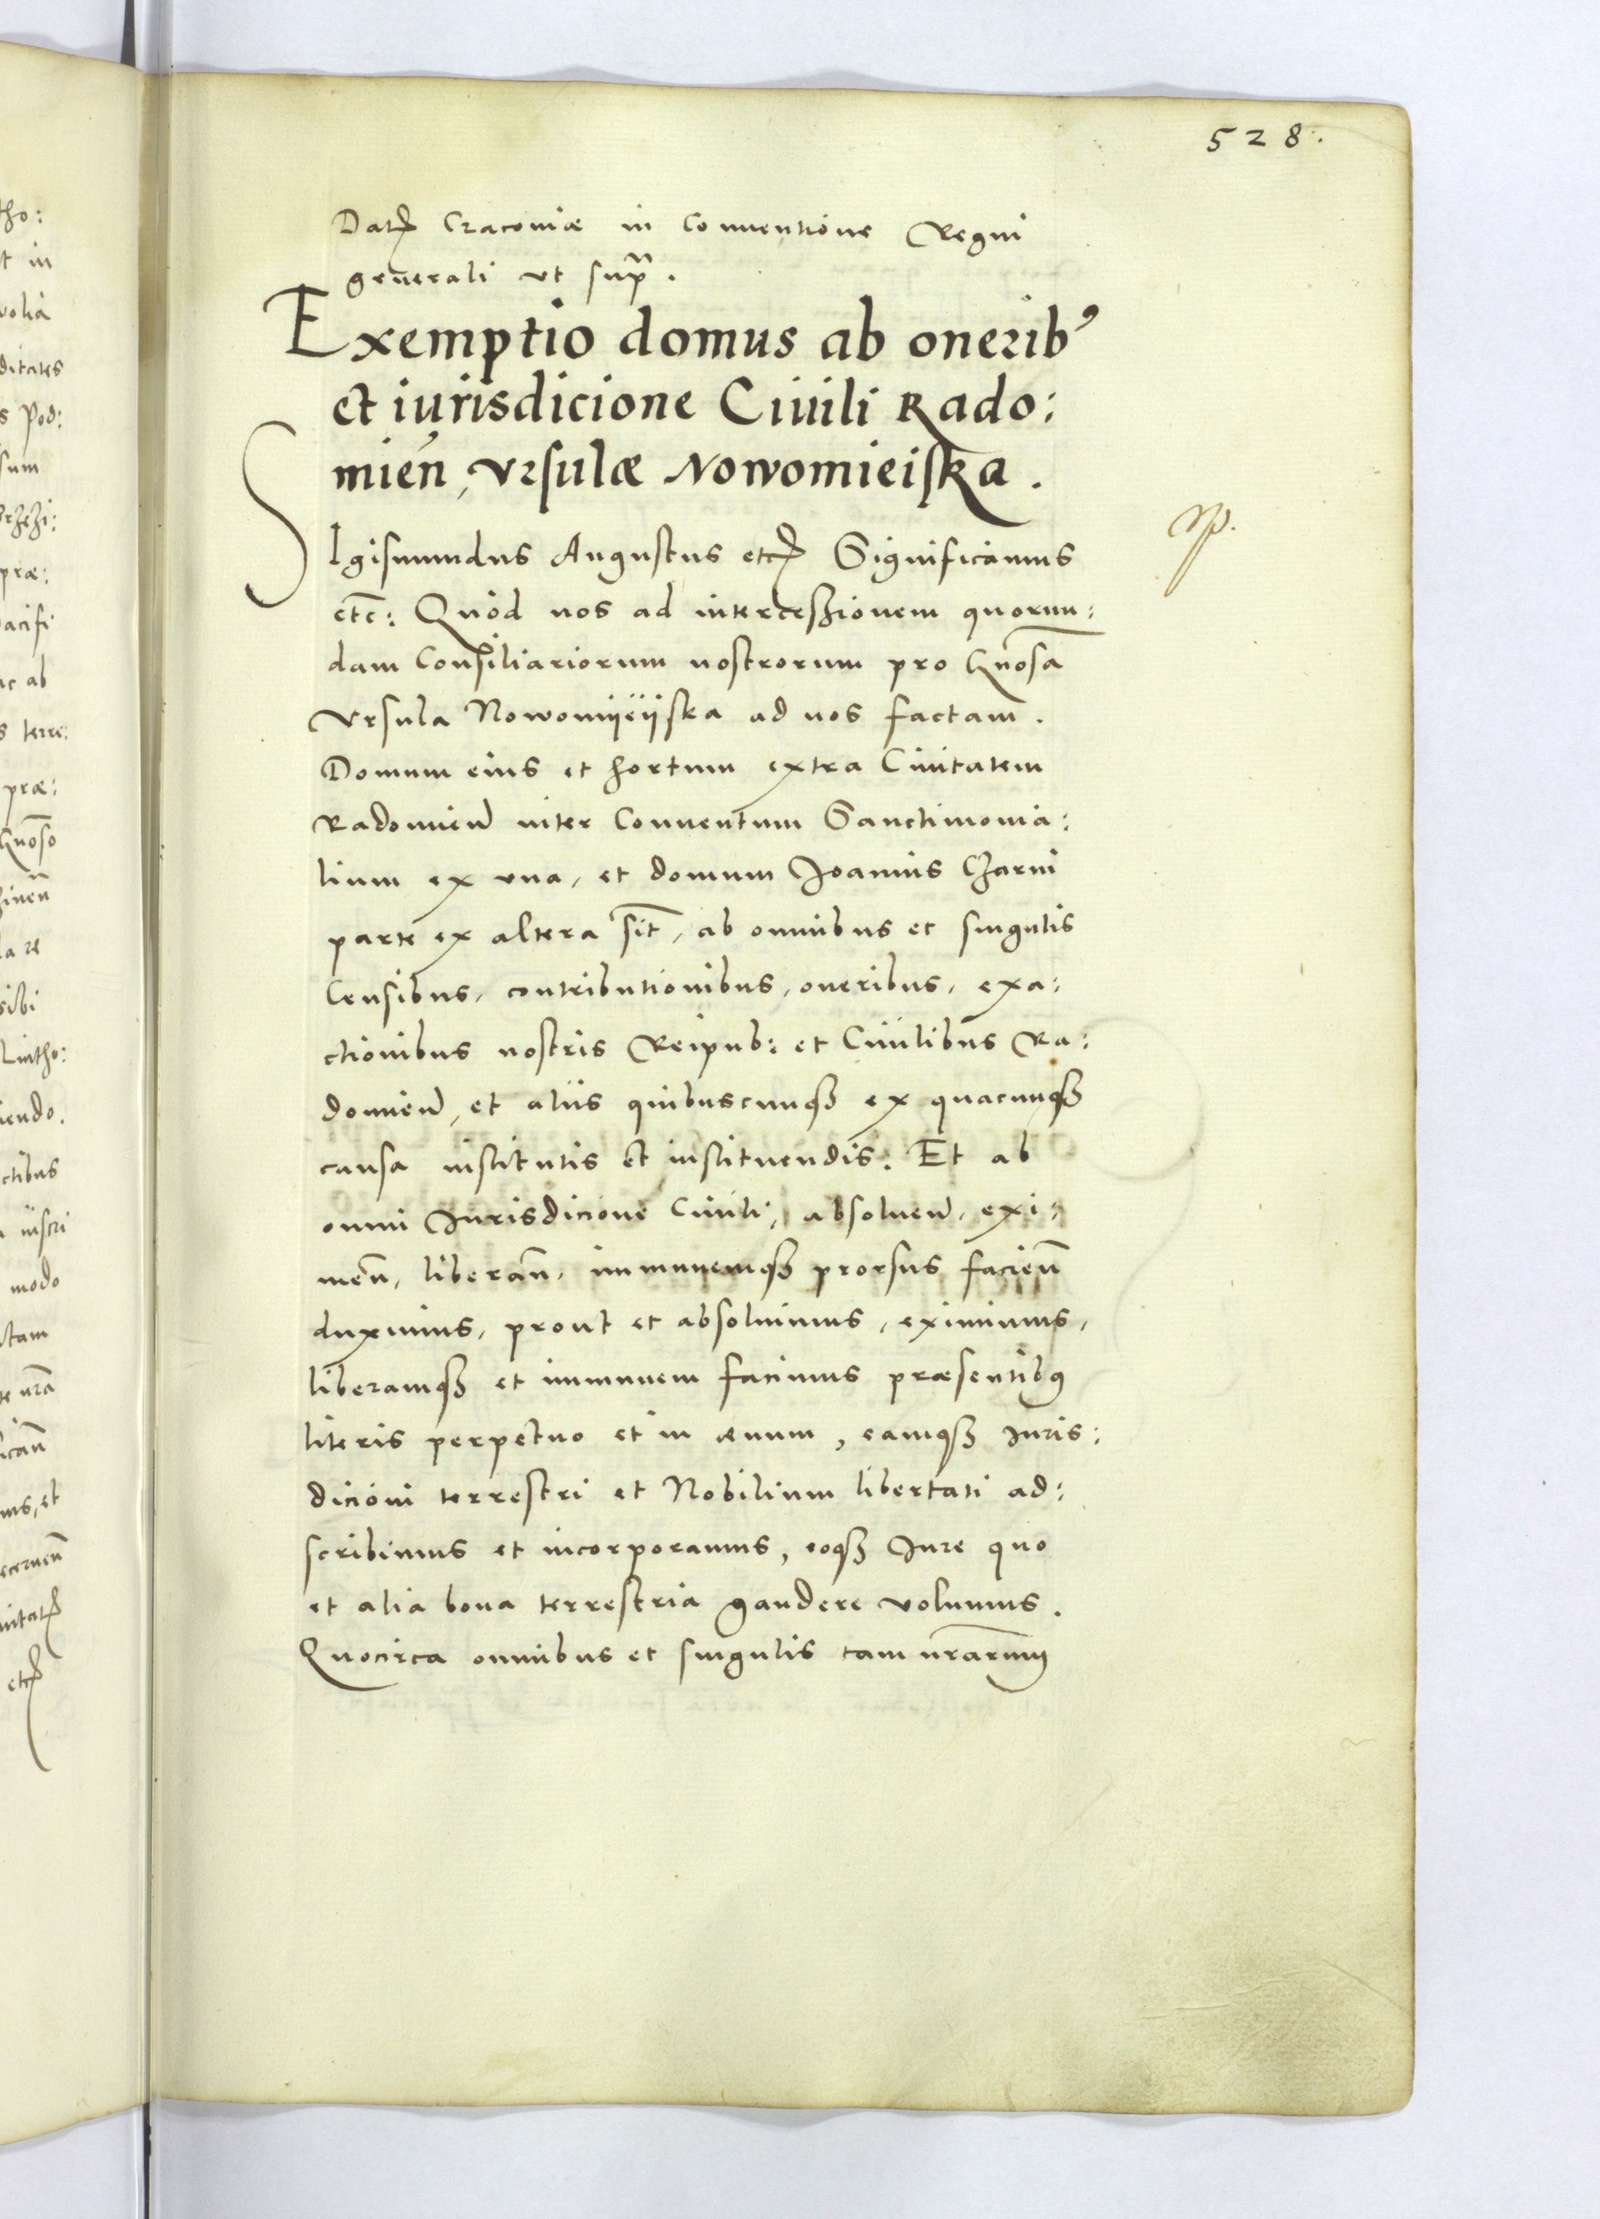 528.
Datꝭ Cracoviæ in Conventione Regni
generali ut supra.
Exemptio domus ab oneribꝰ
et iurisdicione Civili Rado:
mieñ, Ursulæ Nowomieiska.
SIgismundus Augustus etcꝭ Significamus
etc̄: Quòd nos ad intercessionem quorun:
dam Consiliariorum nostrorum pro Gn̄osa
Ursula Nowomÿeÿska ad nos factam.
Domum eius et hortum extra Civitatem
Radomieñ inter Conventum Sanctimonia:
lium ex una, et domum Joannis Czarni
parte ex altera sit̄, ab omnibus et singulis
Censibus, contributionibus, oneribus, exa:
ctionibus nostris Reipub: et Civilibus Ra:
domieñ, et aliis quibuscunqꝫ ex quacunqꝫ
causa institutis et instituendis. Et ab
omni Jurisdicione Civili, absolveñ, exi:
meñ, liberañ, immunemqꝫ prorsus facieñ
duximus, prout et absolvimus, eximimus,
liberamqꝫ et immunem facimus præsentibꝰ
literis perpetuo et in ævum, eamqꝫ Juris:
dicioni terrestri et Nobilium libertati ad:
scribimus et incorporamus, eoqꝫ Jure quo
et alia bona terrestria gaudere volumus.
Quocirca omnibus et singulis tam nr̄arum